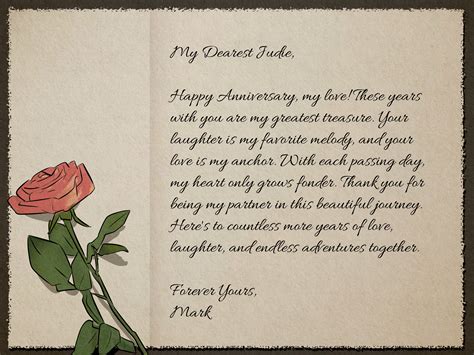 My Dearest Judie,
Happy Anniversary, my love! These years
with you are my greatest treasure. Your
laughter is my favorite melody, and your
love is my anchor. With each passing day,
my heart only grows fonder. Thank you for
being my partner in this beautiful journey.
Here's to countless more years of love,
laughter, and endless adventures together.
Forever Yours,
Mark